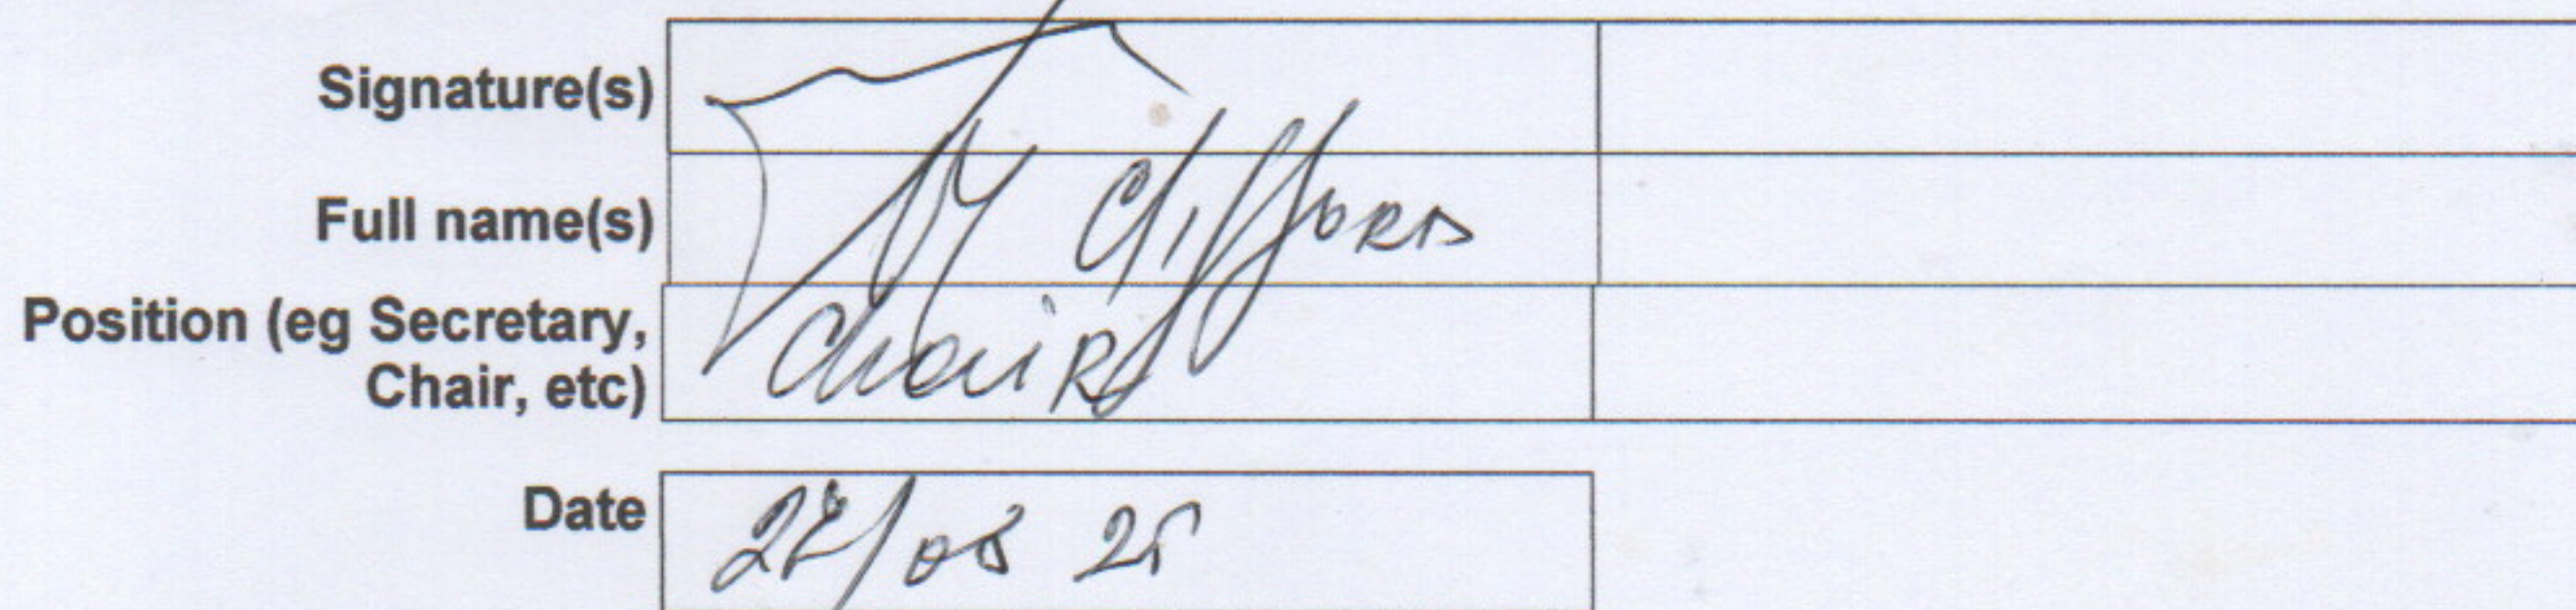 Signature(s)
Full name(s) M Clifford
Position (eg Secretary,
Chair, etc) Chair
Date 25